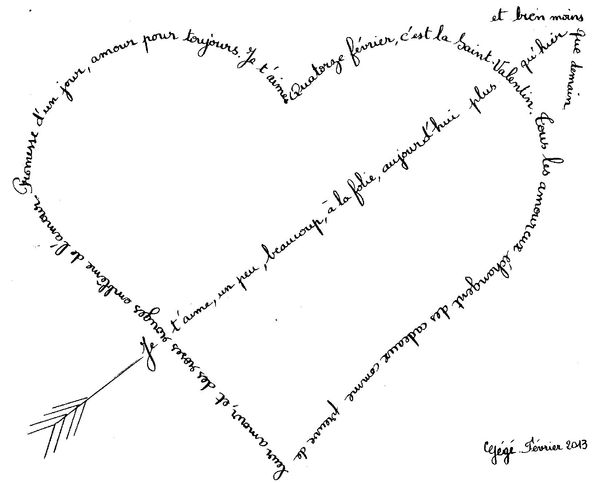 Quatorze février, c'est la Saint-Valentin. Tous les amoureux échangent des cadeaux comme preuve de
leur amour, et des roses rouges emblème de l'amour. Promesse d'un jour, amour pour toujours. Je t'aime.
Je t'aime, un peu, beaucoup, à la folie, aujourd'hui plus qu'hier
et bien moins
que demain
Gégé Février 2013